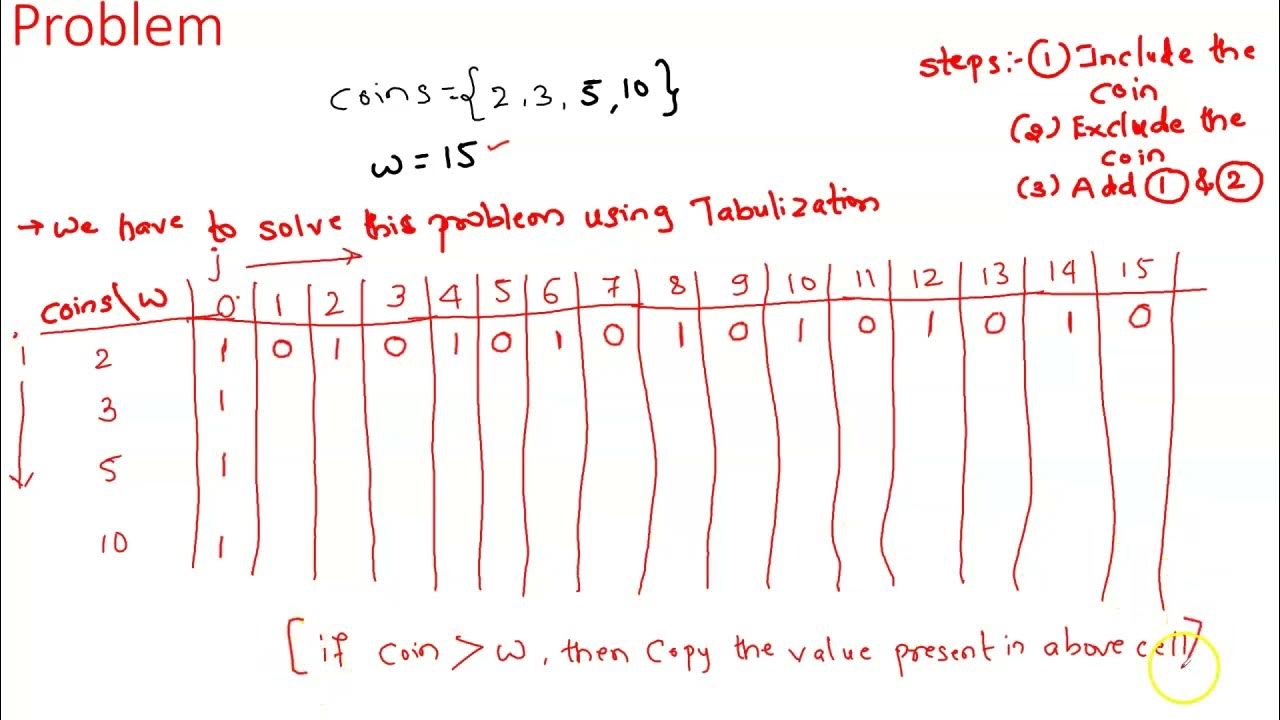 Problem
coins={2,3,5,10}
w=15
steps:- (1) Include the
coin
(2) Exclude the
coin
(3) Add (1) & (2)
→ we have to solve this problem using Tabulization
j
coins\w 0 1 2 3 4 5 6 7 8 9 10 11 12 13 14 15
i 2 1 0 1 0 1 0 1 0 1 0 1 0 1 0 1 0
3 1
5 1
10 1
[if coin > w, then copy the value present in above cell]